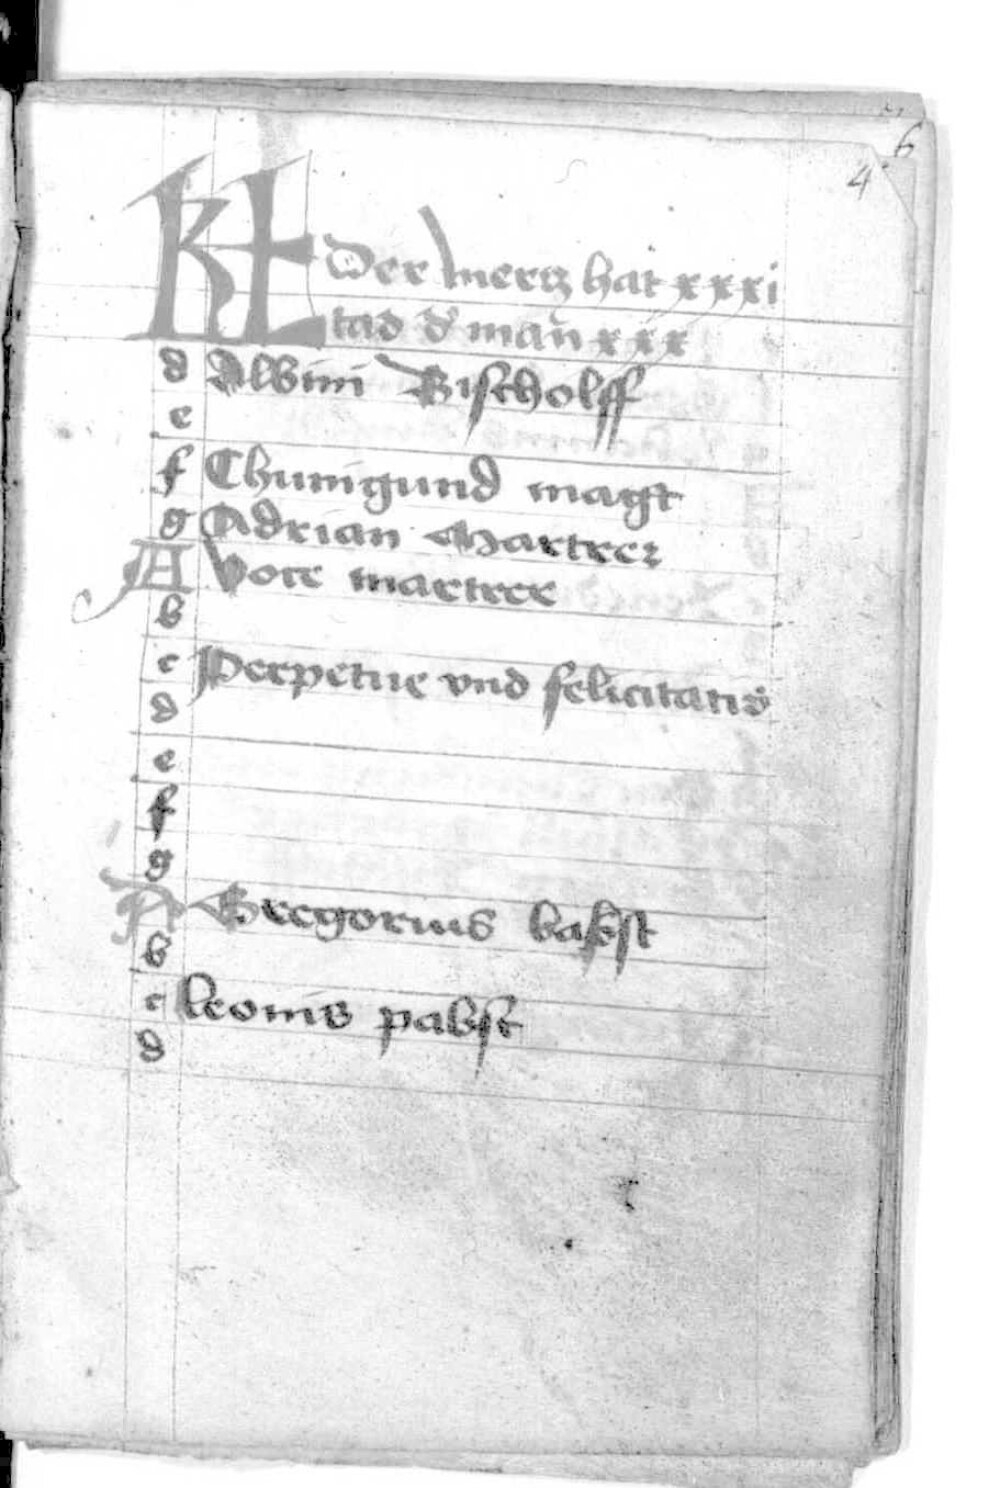 6
4
KL Der mertz hat xxxi
tag d' man xxx
d Albini Bischolff
e
f Chunigund magt
g Adrian Martrer
A Voce martrer
b
c Perpetue vnd felicitatis
d
e
f
g
A Gregorius babst
b
c leonis pabst
d